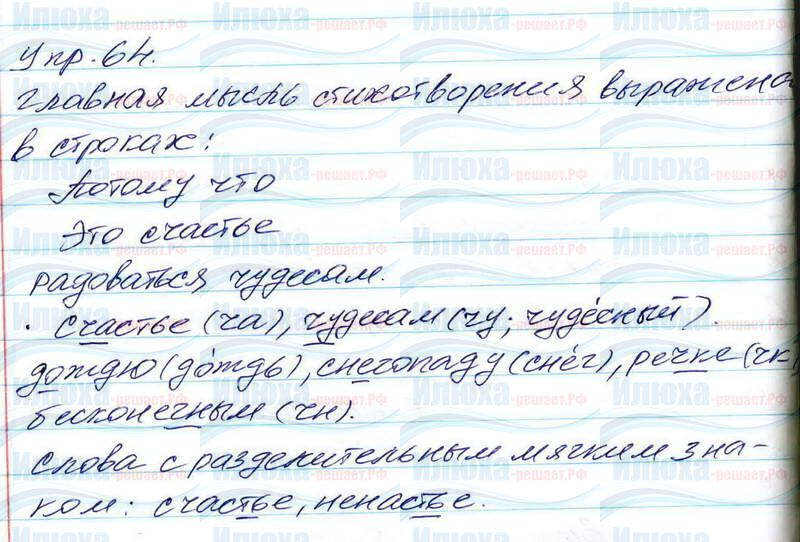 Упр. 64.
Главная мысль стихотворения выражена
в строках:
Потому что
Это счастье
радоваться чудесам.
· счастье (ча), чудесам (чу; чуде́сный).
дождю (до́ждь), снегопаду (сне́г), речке (чк),
бесконечным (чн).
Слова с разделительным мягким зна-
ком: счастье, ненастье.